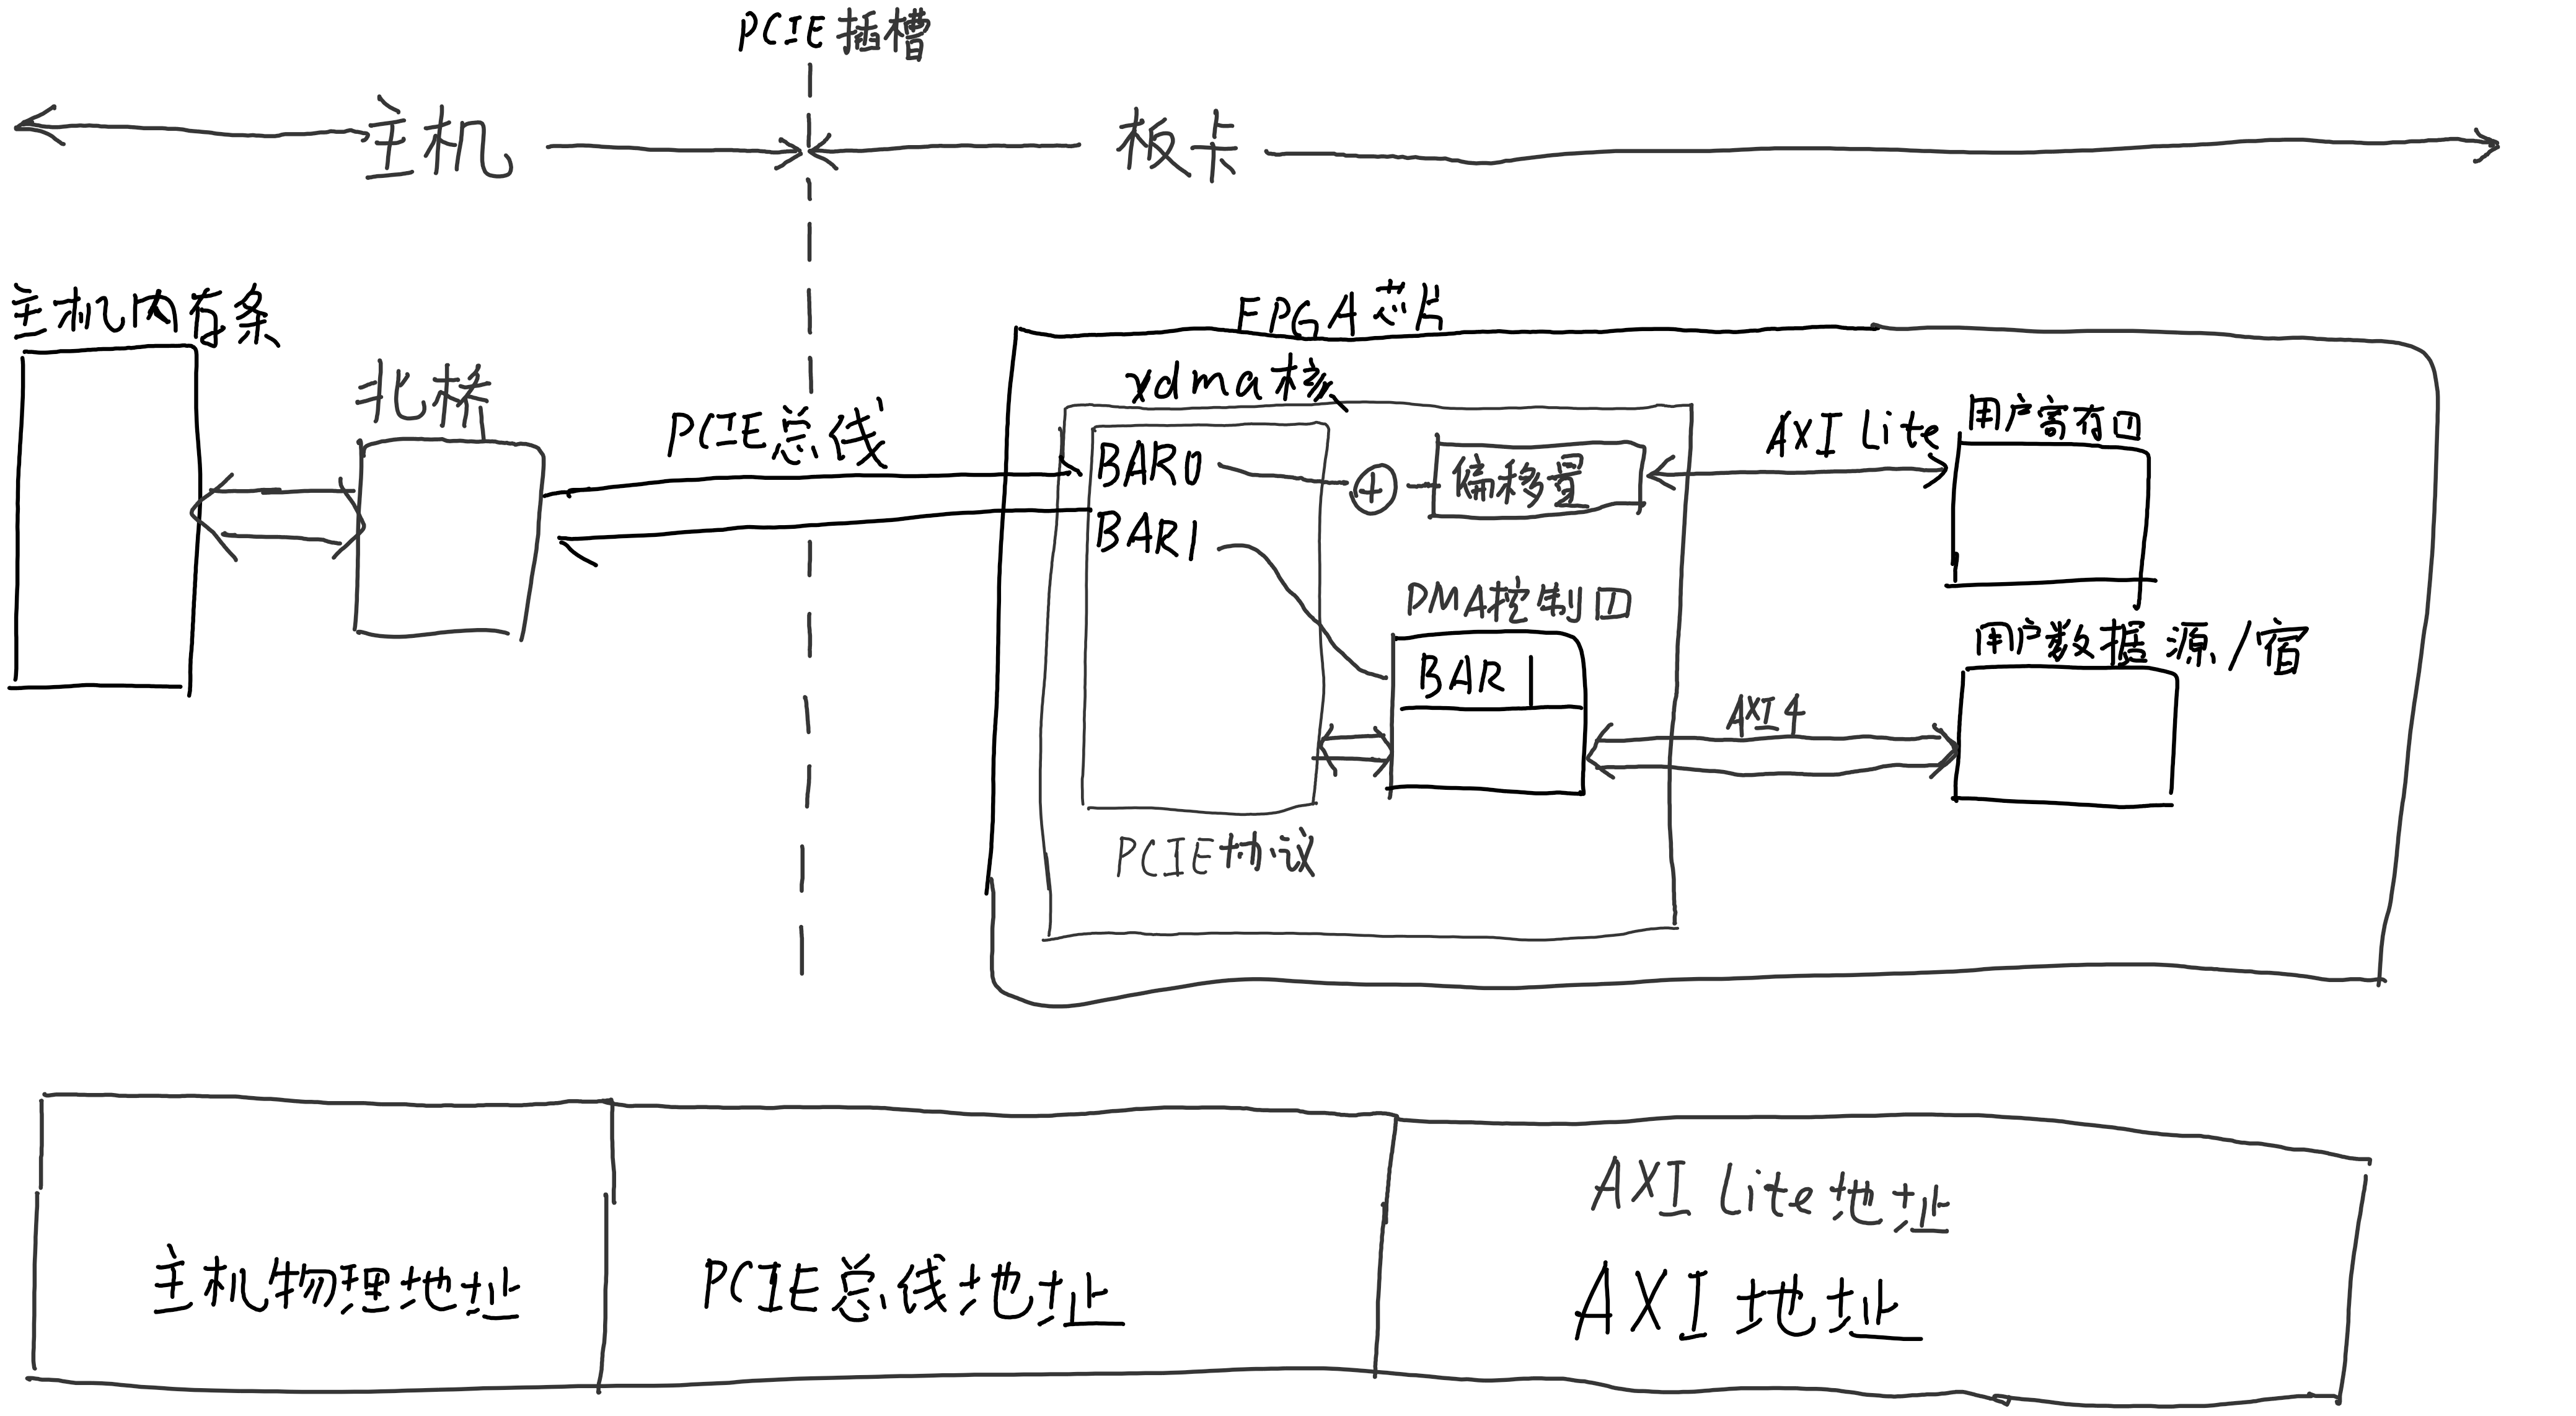 PCIE插槽
主机
板卡
主机内存条
北桥
PCIE总线
FPGA芯片
xdma核
BAR0
BAR1
偏移量
AXI Lite
用户寄存口
DMA控制口
BAR 1
AXI4
用户数据源/宿
PCIE协议
主机物理地址
PCIE总线地址
AXI Lite地址
AXI 地址